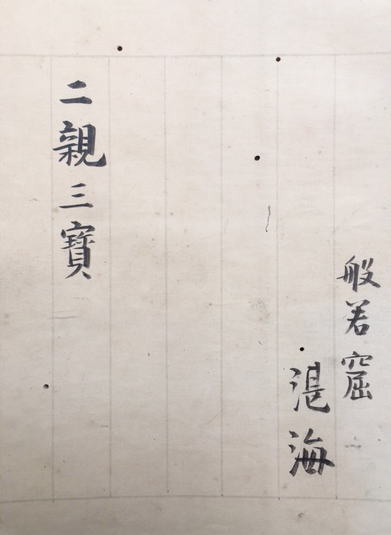 般若窟
湛海
二親三寶